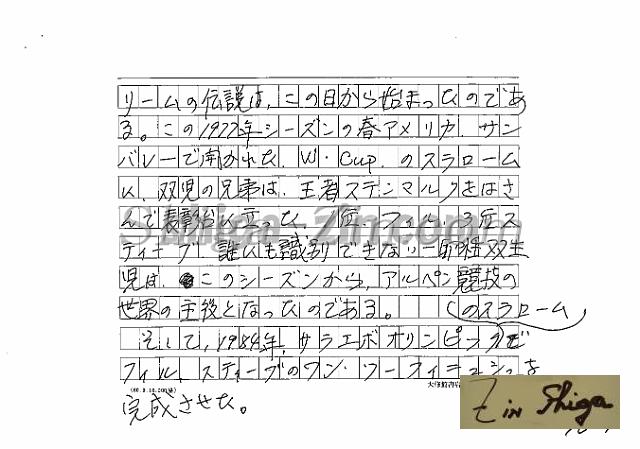 リームの伝説は、この日から始まったのであ
る。この1977年シーズンの春アメリカ、サン
バレーで開かれた、W・Cup.のスラローム
に、双児の兄弟は、王者ステンマルクをはさ
んで表彰台に立った。1位フィル、3位ス
ティーブ、誰にも識別できない一卵性双生
児は、このシーズンから、アルペン競技の
世界の主役となったのである。
(のスラローム
そして、1984年、サラエボオリンピックで
フィル、スティーブのワン・ツーフィニッシュを
完成させた。
Shiga-Zin.com
Z in Shiga